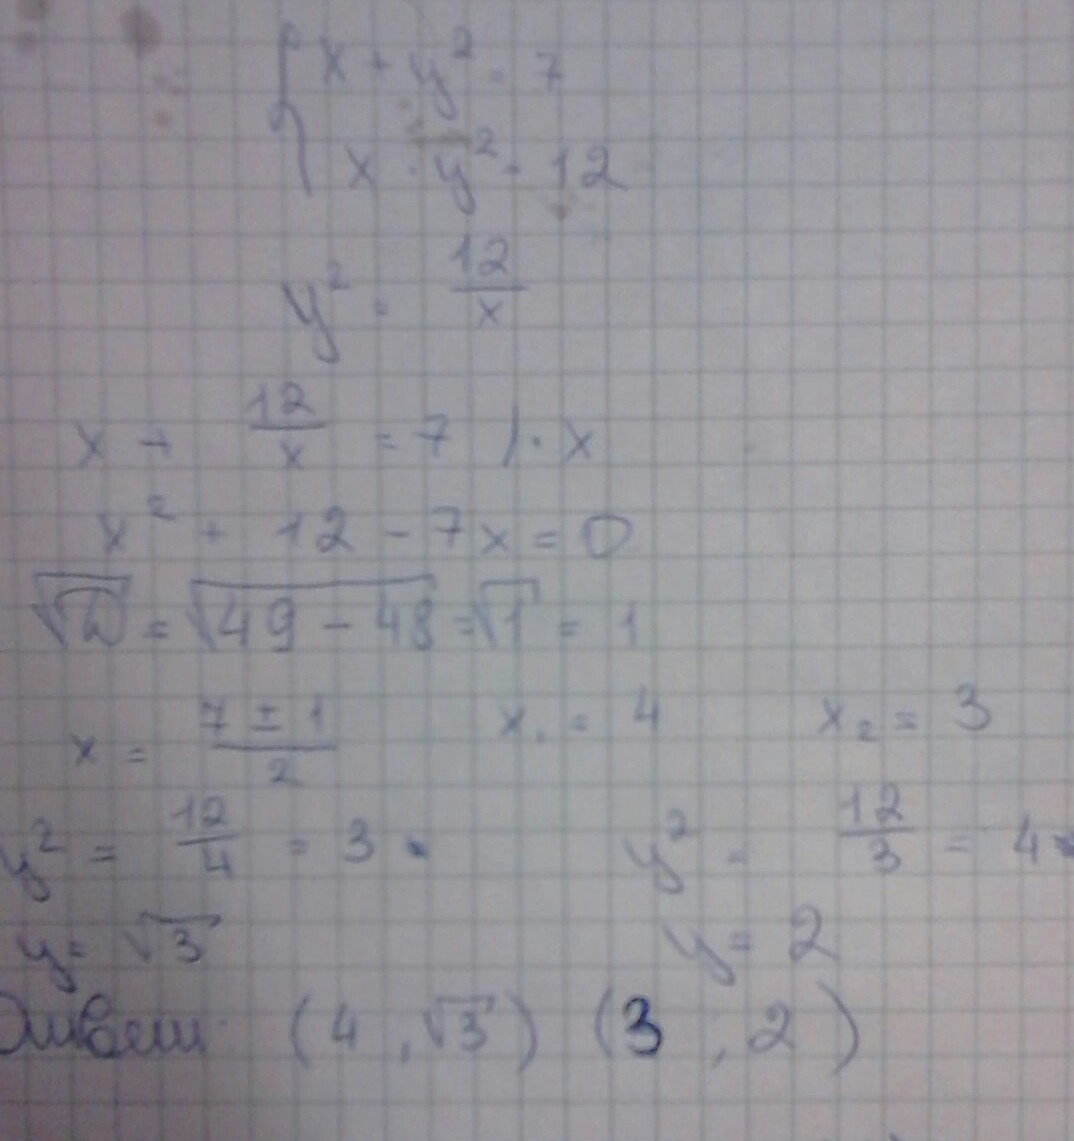 { x + y² = 7
x · y² = 12
y² = 12/x
x + 12/x = 7 | · x
x² + 12 - 7x = 0
√D = √49 - 48 = √1 = 1
x = 7 ± 1/2 x₁ = 4 x₂ = 3
y² = 12/4 = 3 y² = 12/3 = 4
y = √3 y = 2
Ответ: (4, √3) (3 ; 2)